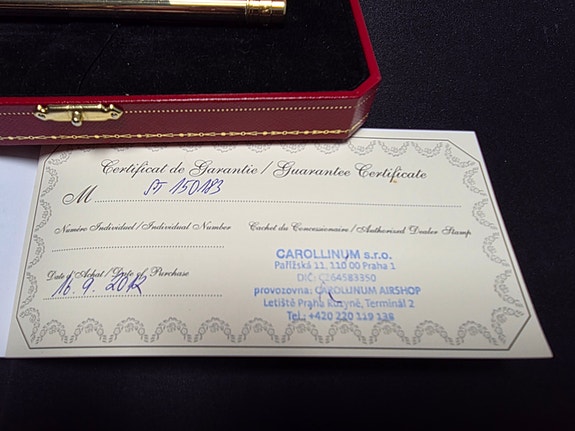 Certificat de Garantie / Guarantee Certificate
M ST 150183
Numéro Individuel / Individual Number
Cachet du Concessionaire / Authorised Dealer Stamp
Date d'Achat / Date of Purchase
16. 9. 2012
CAROLLINUM s.r.o.
Pařížská 11, 110 00 Praha 1
DIČ: CZ64583350
provozovna: CAROLLINUM AIRSHOP
Letiště Praha Ruzyně, Terminál 2
Tel.: +420 220 119 138